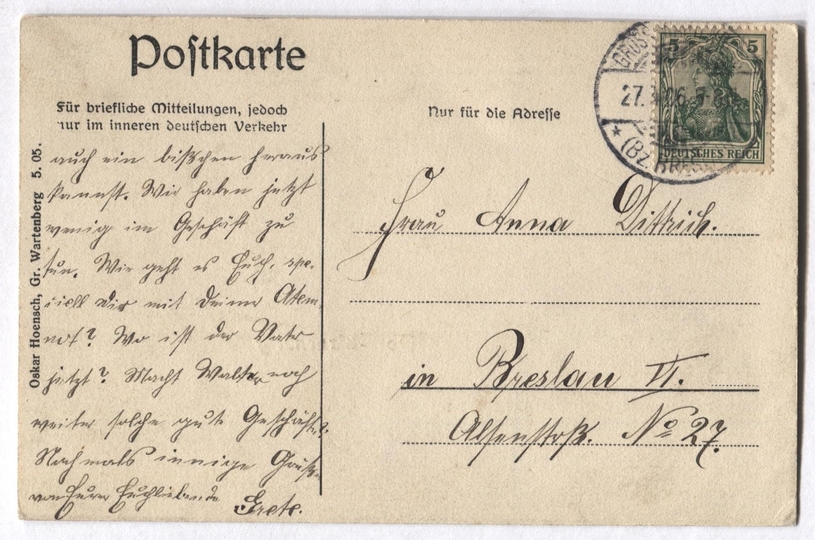 Postkarte
Für briefliche Mitteilungen, jedoch
nur im inneren deutschen Verkehr
Nur für die Adresse
5 5
DEUTSCHES REICH
GROSS
27. 6. 5-
* (BZ. BRES
Oskar Hoensch, Gr. Wartenberg 5. 05.
auch ein bißchen heraus
kannst. Wir haben jetzt
wenig im Geschäft zu
tun. Wie geht es Euch, spe-
ziell Dir mit Deiner Atem-
not? Wo ist der Vater
jetzt? Macht Walter noch
weiter solche gute Geschäfte?
Nochmals innige Grüße
von Eurer Euchliebende
Grete.
Frau Anna Dittrich.
in Breslau VI.
Alsenstrß. No 27.